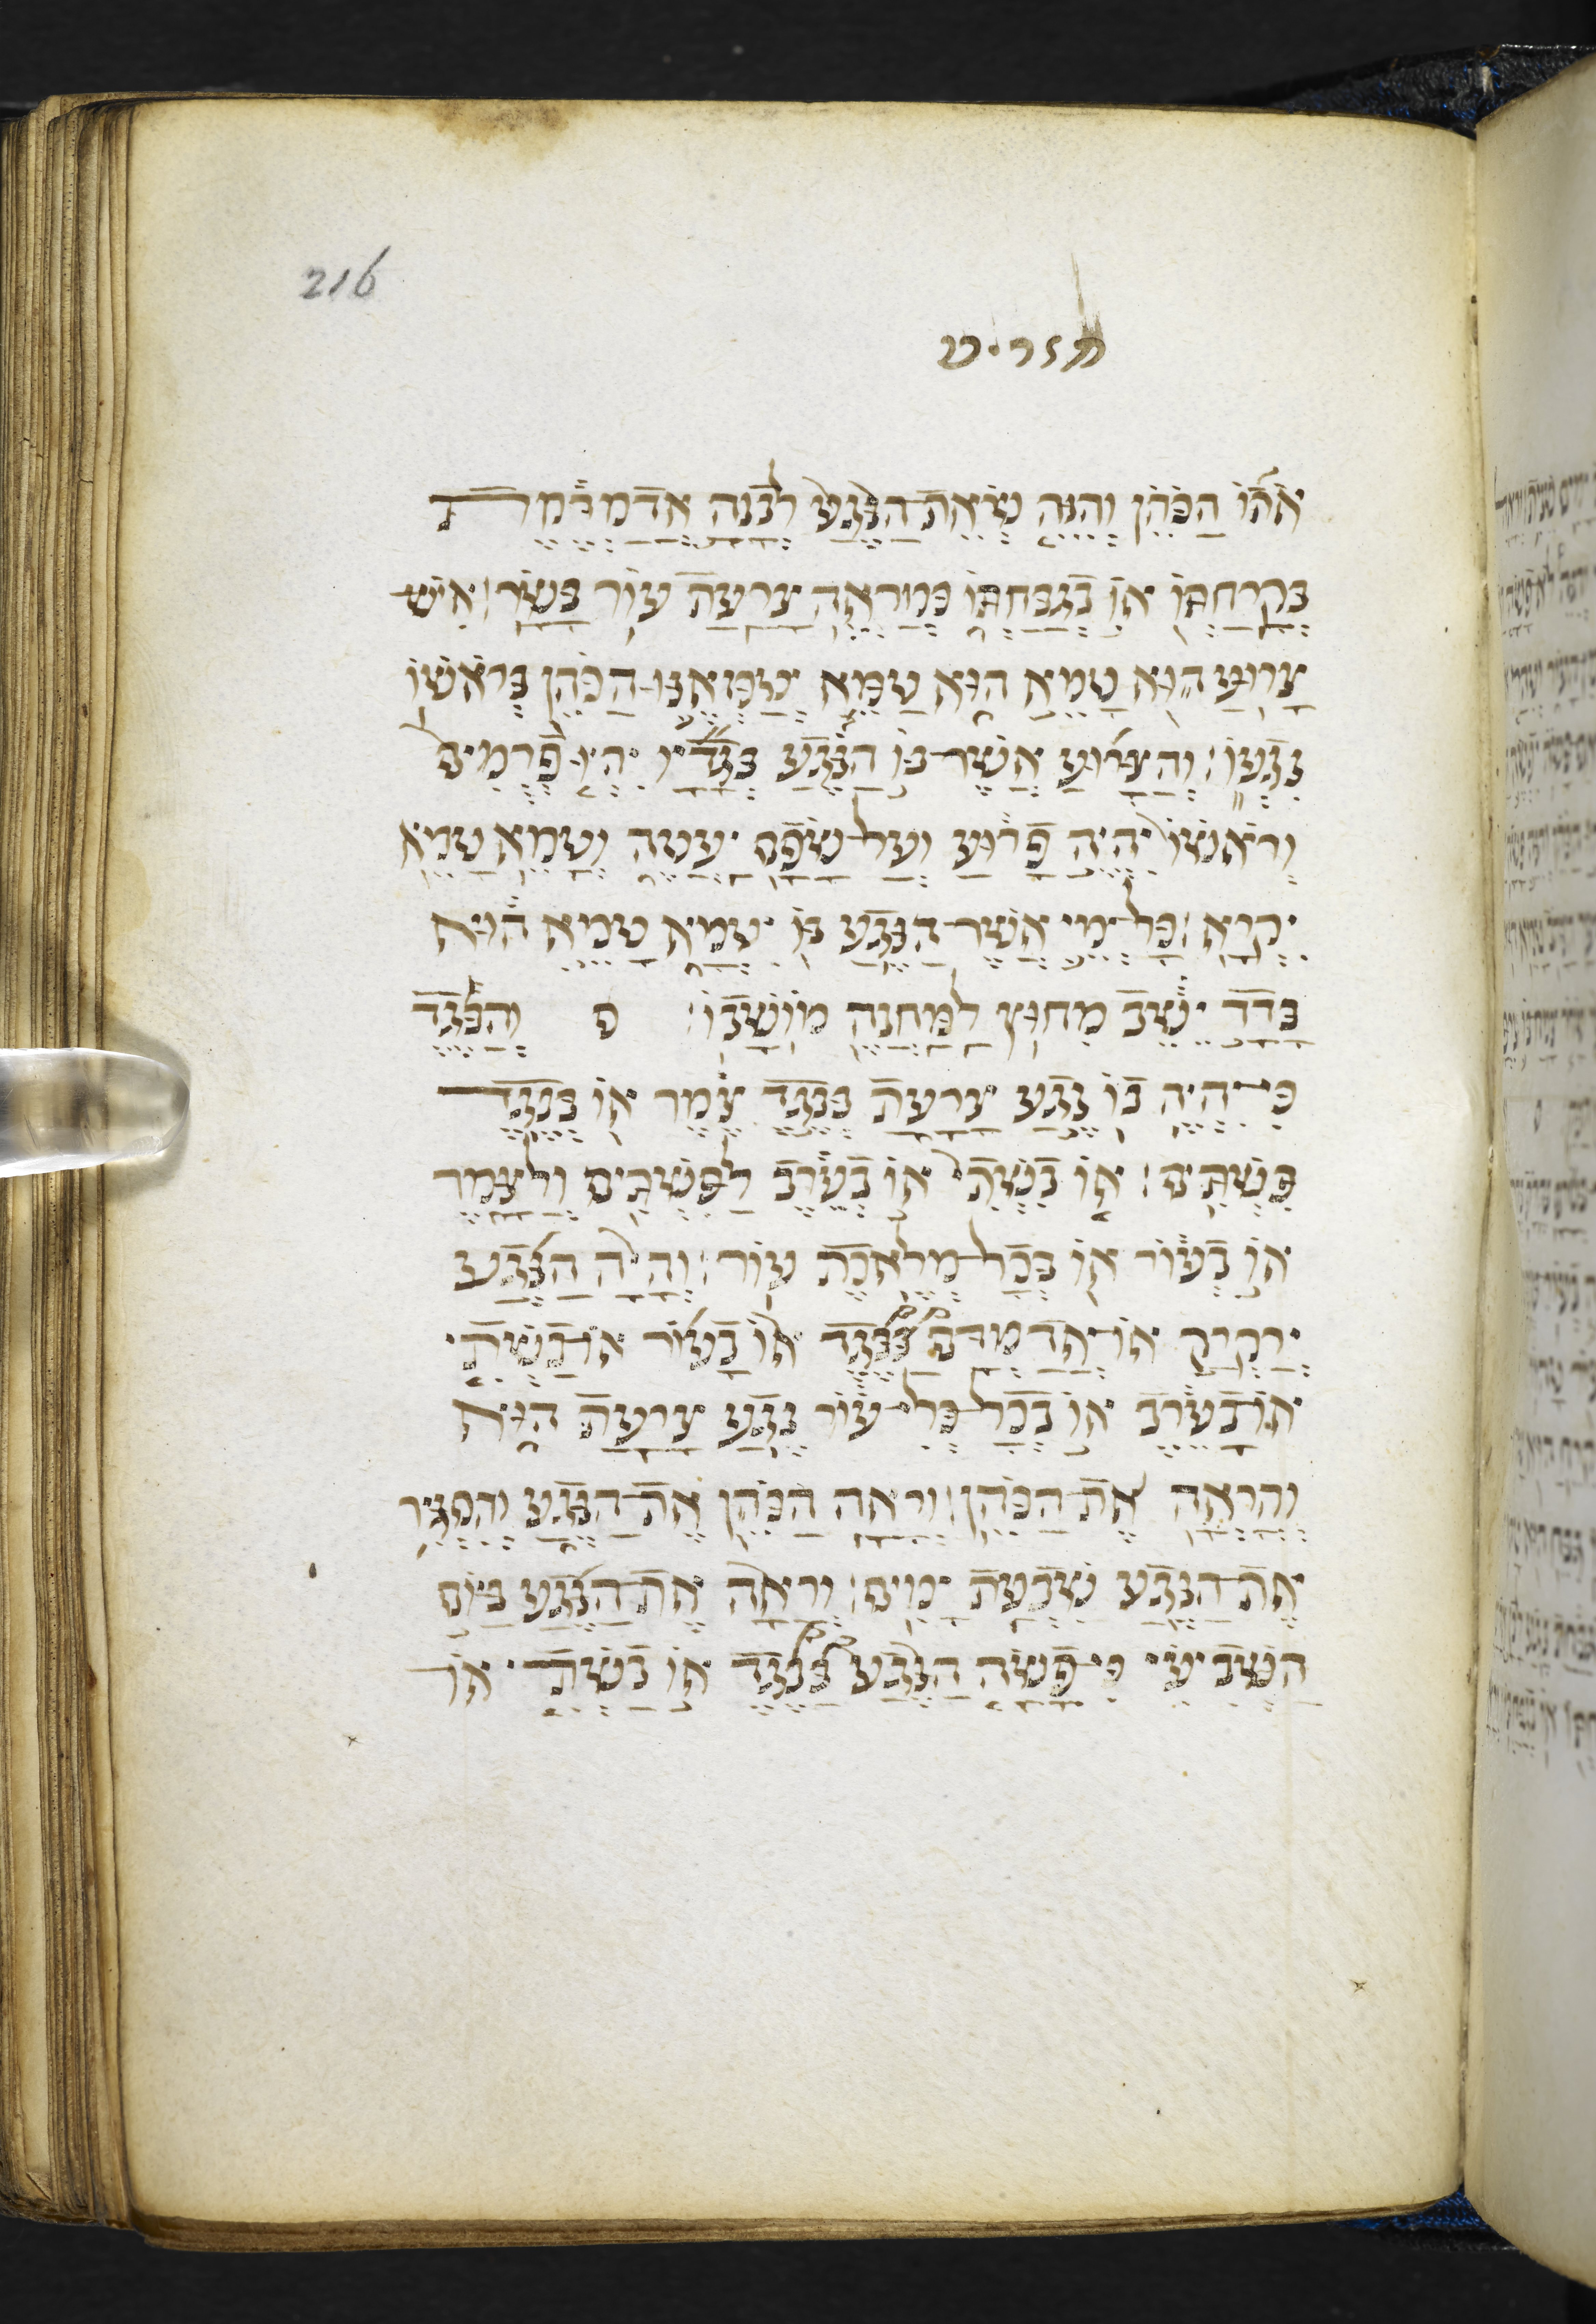 216
תזריע
אֹתוֹ הַכֹּהֵן וְהִנֵּה שְׂאֵת־הַנֶּגַע לְבָנָה אֲדַמְדֶּמֶת
בְּקָרַחְתּוֹ אוֹ בְגַבַּחְתּוֹ כְּמַרְאֵה צָרַעַת עוֹר בָּשָׂר׃ אִישׁ
צָרוּעַ הוּא טָמֵא הוּא טַמֵּא יְטַמְּאֶנּוּ הַכֹּהֵן בְּרֹאשׁוֹ
נִגְעוֹ׃ וְהַצָּרוּעַ אֲשֶׁר־בּוֹ הַנֶּגַע בְּגָדָיו יִהְיוּ פְרֻמִים
וְרֹאשׁוֹ יִהְיֶה פָרוּעַ וְעַל־שָׂפָם יַעְטֶה וְטָמֵא טָמֵא
יִקְרָא׃ כָּל־יְמֵי אֲשֶׁר הַנֶּגַע בּוֹ יִטְמָא טָמֵא הוּא
בָּדָד יֵשֵׁב מִחוּץ לַמַּחֲנֶה מוֹשָׁבוֹ׃ ס וְהַבֶּגֶד
כִּי־יִהְיֶה בוֹ נֶגַע צָרָעַת בְּבֶגֶד צֶמֶר אוֹ בְּבֶגֶד
פִּשְׁתִּים׃ אוֹ בִשְׁתִי אוֹ בְעֵרֶב לַפִּשְׁתִּים וְלַצָּמֶר
אוֹ בְעוֹר אוֹ בְּכָל־מְלֶאכֶת עוֹר׃ וְהָיָה הַנֶּגַע
יְרַקְרַק אוֹ־אֲדַמְדָּם בַּבֶּגֶד אוֹ בָעוֹר אוֹ־בַשְּׁתִי
אוֹ־בָעֵרֶב אוֹ בְכָל־כְּלִי־עוֹר נֶגַע צָרַעַת הוּא
וְהָרְאָה אֶת־הַכֹּהֵן׃ וְרָאָה הַכֹּהֵן אֶת־הַנָּגַע וְהִסְגִּיר
אֶת־הַנֶּגַע שִׁבְעַת יָמִים׃ וְרָאָה אֶת־הַנֶּגַע בַּיּוֹם
הַשְּׁבִיעִי כִּי־פָשָׂה הַנֶּגַע בַּבֶּגֶד אוֹ בַשְּׁתִי אוֹ